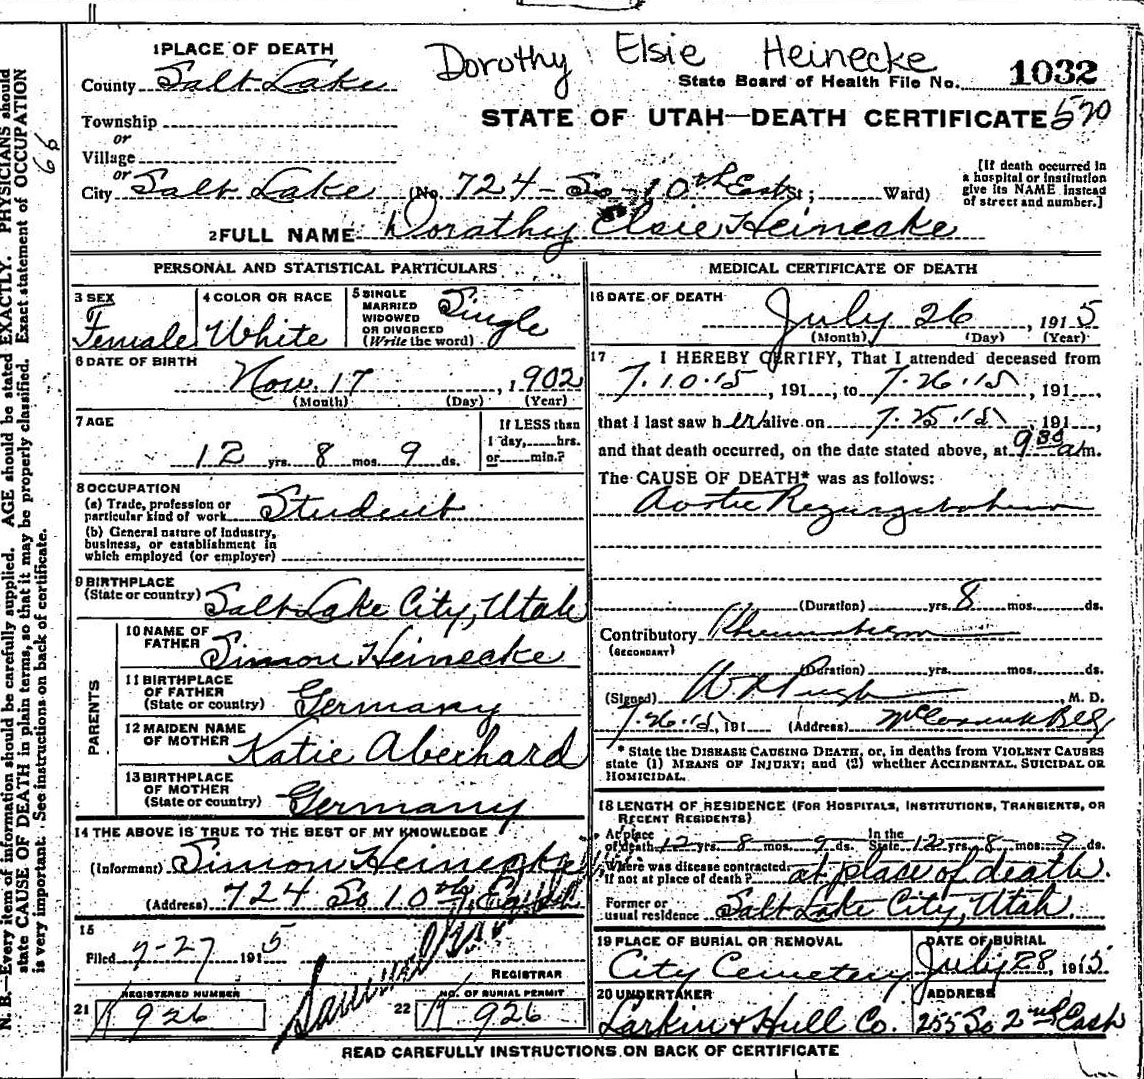 Dorothy Elsie Heinecke
1 PLACE OF DEATH
County Salt Lake
State Board of Health File No. 1032
Township
or
Village
or
STATE OF UTAH—DEATH CERTIFICATE 570
City Salt Lake (No. 724 - So - 10th East St; Ward)
[If death occurred in
a hospital or institution
give its NAME instead
of street and number.]
2 FULL NAME Dorathy Elsie Heinecke
PERSONAL AND STATISTICAL PARTICULARS
3 SEX
Female
4 COLOR OR RACE
White
5 SINGLE
MARRIED
WIDOWED
OR DIVORCED
(Write the word) Single
6 DATE OF BIRTH
Nov. 17, 1902
(Month) (Day) (Year)
7 AGE
12 yrs. 8 mos. 9 ds.
If LESS than
1 day,......hrs.
or......min.?
8 OCCUPATION
(a) Trade, profession or
particular kind of work Student
(b) General nature of industry,
business, or establishment in
which employed (or employer)
9 BIRTHPLACE
(State or country) Salt Lake City, Utah
PARENTS
10 NAME OF
FATHER Simon Heinecke
11 BIRTHPLACE
OF FATHER
(State or country) Germany
12 MAIDEN NAME
OF MOTHER Katie Aberhard
13 BIRTHPLACE
OF MOTHER
(State or country) Germany
14 THE ABOVE IS TRUE TO THE BEST OF MY KNOWLEDGE
(Informant) Simon Heinecke
(Address) 724 So 10th East St.
15
Filed 7-27 1915
REGISTRAR
21 REGISTERED NUMBER
K 926
22 NO. OF BURIAL PERMIT
K 926
MEDICAL CERTIFICATE OF DEATH
16 DATE OF DEATH
July 26, 1915
(Month) (Day) (Year)
17 I HEREBY CERTIFY, That I attended deceased from
7.10.15, 191 , to 7.26.15, 191
that I last saw her alive on 7.25.15, 191 ,
and that death occurred, on the date stated above, at 9 30 a m.
The CAUSE OF DEATH* was as follows:
Aortic Regurgitation
(Duration) yrs. 8 mos. ds.
Contributory Rheumatism
(SECONDARY)
(Duration) yrs. mos. ds.
(Signed) W R Pugh, M. D.
7.26.15, 191 (Address) McCornick Bldg
* State the DISEASE CAUSING DEATH, or, in deaths from VIOLENT CAUSES
state (1) MEANS OF INJURY; and (2) whether ACCIDENTAL, SUICIDAL OR
HOMICIDAL.
18 LENGTH OF RESIDENCE (FOR HOSPITALS, INSTITUTIONS, TRANSIENTS, OR
RECENT RESIDENTS)
At place
of death 12 yrs. 8 mos. 9 ds. In the
State 12 yrs. 8 mos. 9 ds.
Where was disease contracted,
If not at place of death? at place of death.
Former or
usual residence Salt Lake City, Utah.
19 PLACE OF BURIAL OR REMOVAL
City Cemetery
DATE OF BURIAL
July 28, 1915
20 UNDERTAKER
Larkin & Hull Co.
ADDRESS
255 So 2nd East
READ CAREFULLY INSTRUCTIONS ON BACK OF CERTIFICATE
N. B.—Every item of information should be carefully supplied. AGE should be stated EXACTLY. PHYSICIANS should
state CAUSE OF DEATH in plain terms, so that it may be properly classified. Exact statement of OCCUPATION
is very important. See instructions on back of certificate.
66